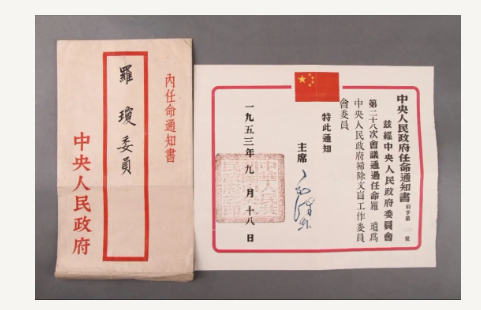 內任命通知書
羅瓊委員
中央人民政府
中央人民政府任命通知書
茲經中央人民政府委員會
第二十八次會議通過任命羅瓊爲
中央人民政府掃除文盲工作委員
會委員
特此通知
主席
一九五三年九月十八日